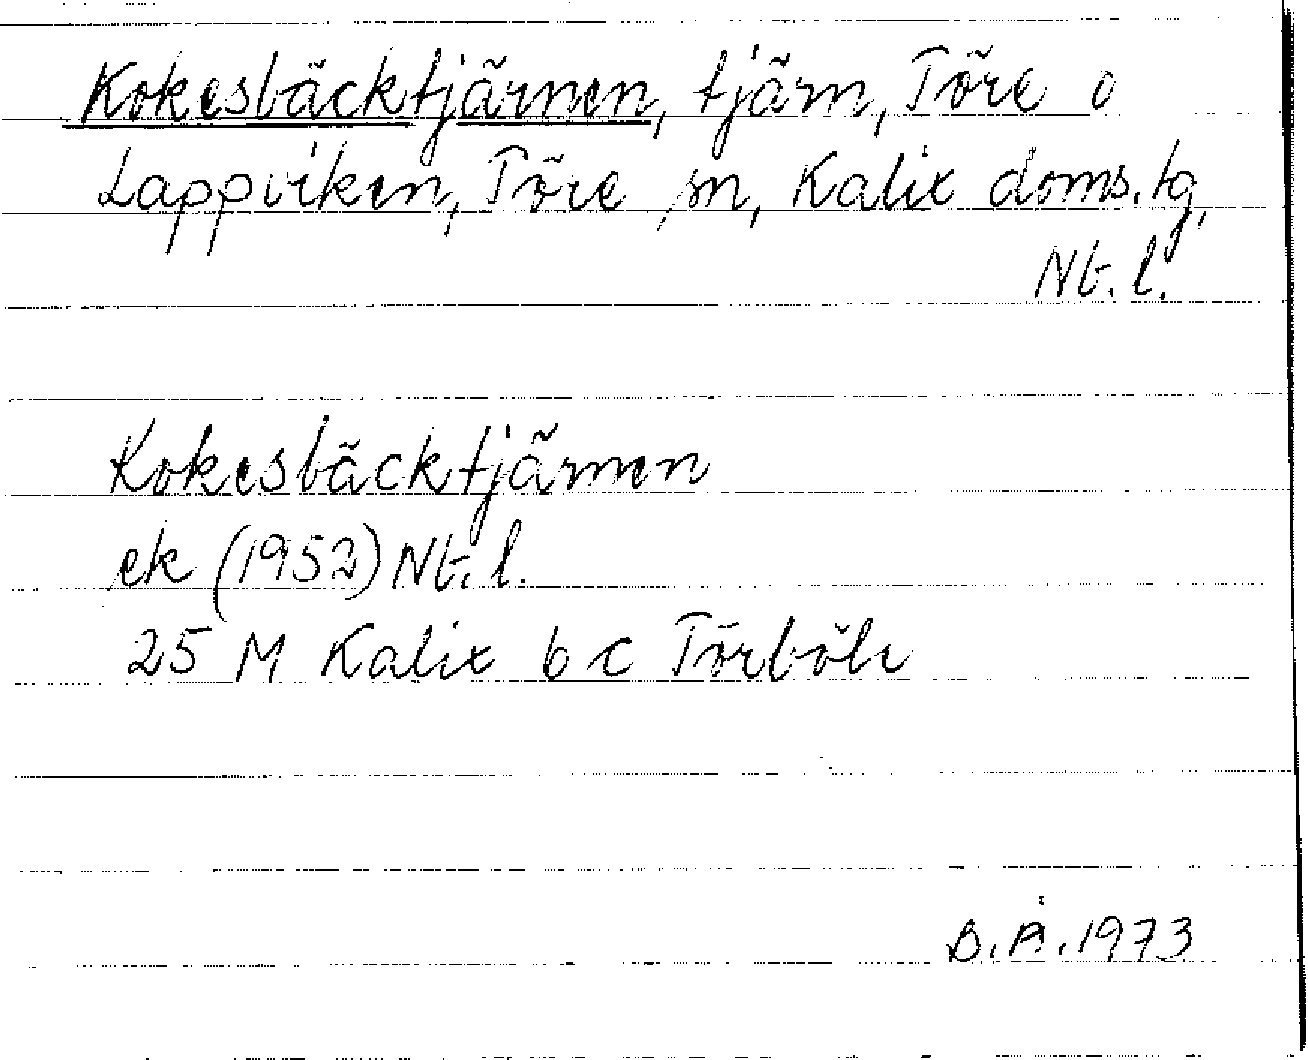 Kokesbäcktjärnen, tjärn, Töre o
Lappviken, Töre sn, Kalix doms.tg,
Nb.l.
Kokesbäcktjärnen
ek (1952) Nb.l.
25 M Kalix 6 c Törböle
B.Å.1973